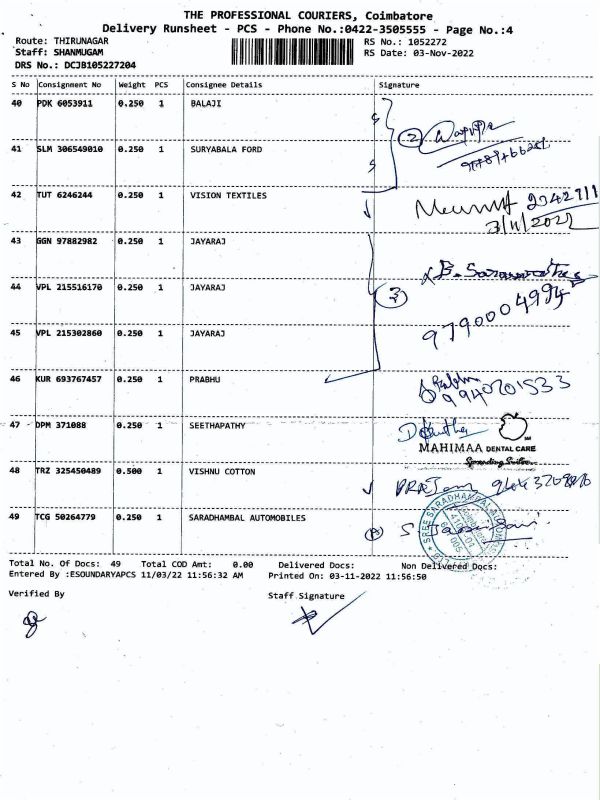 THE PROFESSIONAL COURIERS, Coimbatore
Delivery Runsheet - PCS - Phone No.:0422-3505555 - Page No.:4
Route: THIRUNAGAR RS No.: 1052272
Staff: SHANMUGAM RS Date: 03-Nov-2022
DRS No.: DCJB105227204
S No Consignment No Weight PCS Consignee Details Signature
40 PDK 6053911 0.250 1 BALAJI
2
41 SLM 306549010 0.250 1 SURYABALA FORD
42 TUT 6246244 0.250 1 VISION TEXTILES
3/11/2022
43 GGN 97882982 0.250 1 JAYARAJ
44 VPL 215516170 0.250 1 JAYARAJ
3
9790004994
45 VPL 215302860 0.250 1 JAYARAJ
46 KUR 693767457 0.250 1 PRABHU
9940201533
47 DPM 371088 0.250 1 SEETHAPATHY
MAHIMAA DENTAL CARE
Spreading Smiles...
48 TRZ 325450489 0.500 1 VISHNU COTTON
49 TCG 50264779 0.250 1 SARADHAMBAL AUTOMOBILES
SREE SARADHAMBAL
Total No. Of Docs: 49 Total COD Amt: 0.00 Delivered Docs: Non Delivered Docs:
Entered By :ESOUNDARYAPCS 11/03/22 11:56:32 AM Printed On: 03-11-2022 11:56:50
Verified By Staff Signature